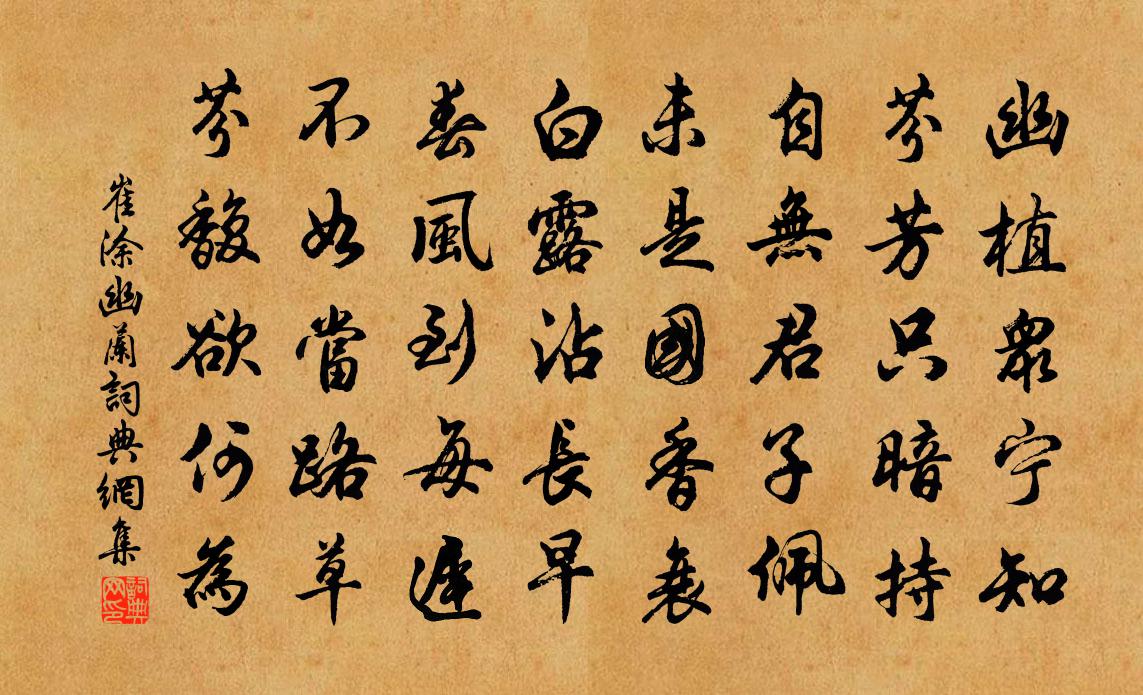 幽植眾宁知
芬芳只暗持
自無君子佩
未是國香衰
白露沾長早
春風到每遲
不如當路草
芬馥欲何為
崔涂幽蘭詞典網集
詞典網印